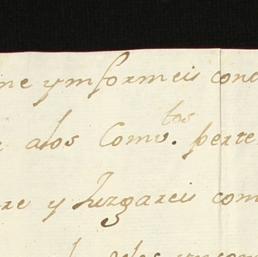 me ynformeis con
alos Comv.tos perte
re y Juzgareis com